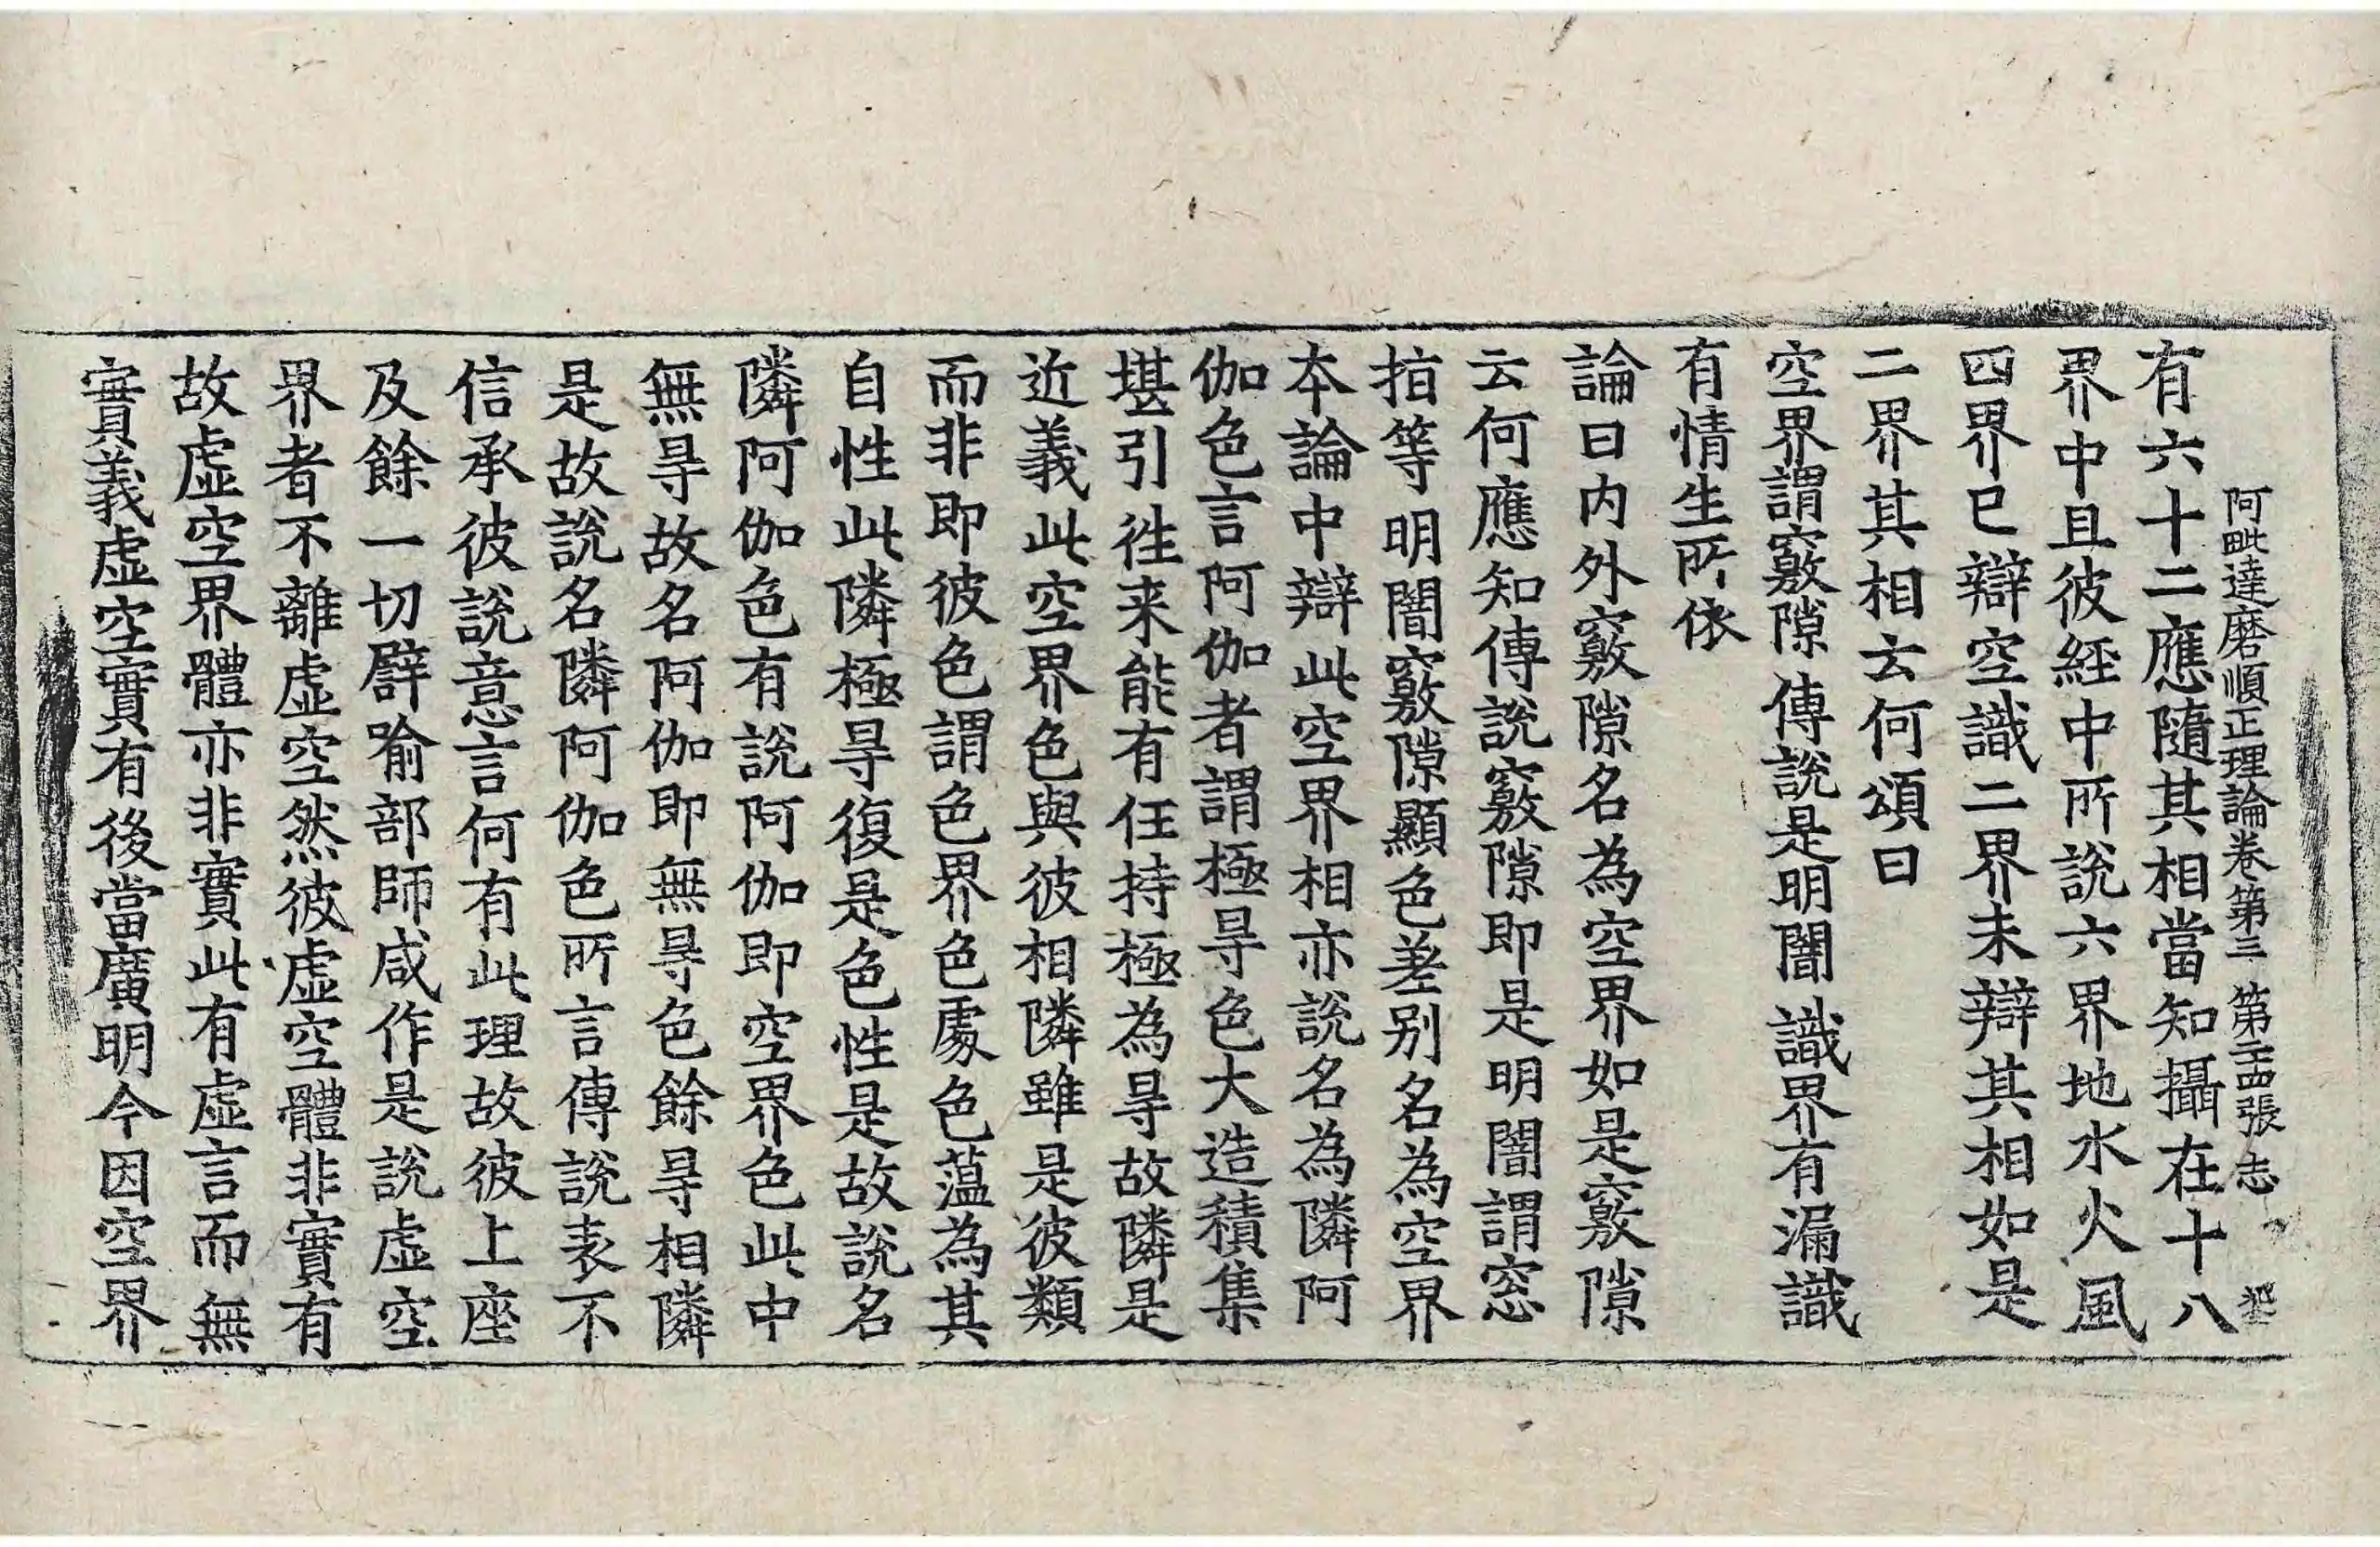 阿毗達磨順正理論卷第三 第二十四張 志
有六十二應隨其相當知攝在十八
界中且彼經中所說六界地水火風
四界已辯空識二界未辯其相如是
二界其相云何頌曰
空界謂竅隙 傳說是明闇 識界有漏識
有情生所依
論曰內外竅隙名為空界如是竅隙
云何應知傳說竅隙即是明闇謂窓
指等明闇竅隙顯色差別名為空界
本論中辯此空界相亦說名為隣阿
伽色言阿伽者謂極㝵色大造積集
堪引徃来能有任持極為㝵故隣是
近義此空界色與彼相隣雖是彼類
而非即彼色謂色界色處色蘊為其
自性此隣極㝵復是色性是故說名
隣阿伽色有說阿伽即空界色此中
無㝵故名阿伽即無㝵色餘㝵相隣
是故說名隣阿伽色所言傳說表不
信承彼說意言何有此理故彼上座
及餘一切譬喻部師咸作是說虛空
界者不離虛空然彼虛空體非實有
故虛空界體亦非實此有虛言而無
實義虛空實有後當廣明今因空界